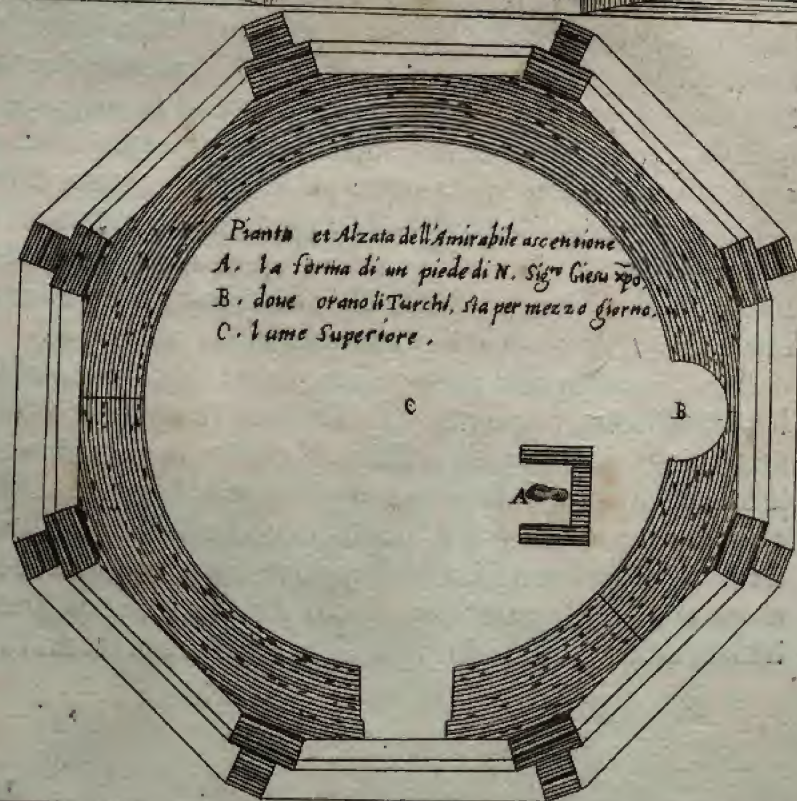 Pianta et Alzata dell'Amirabile ascentione
A. la forma di un piede di N. Sigre Giesu xpo
B. doue orano li Turchi, sta per mezzo giorno.
C. lume Superiore.
C
B
A